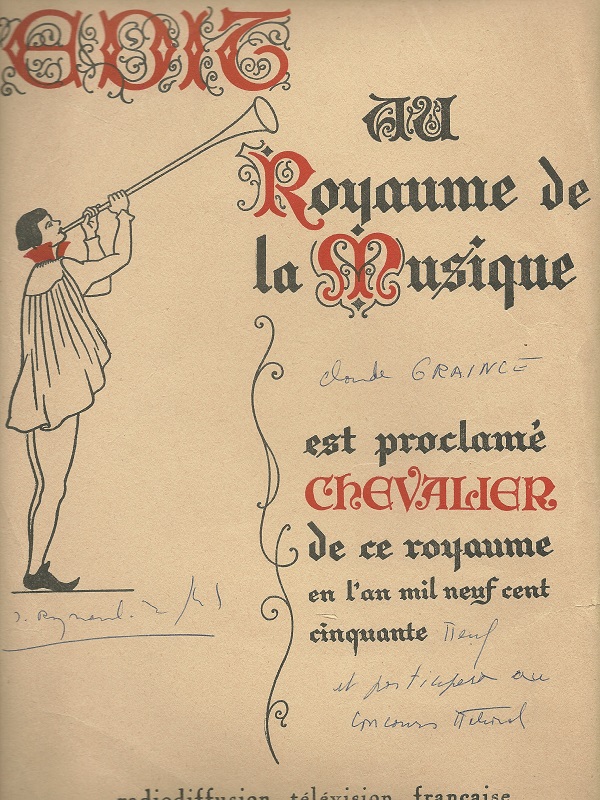 EDIT
AU
Royaume de
la Musique
Claude GRAINCÉ
est proclamé
CHEVALIER
de ce royaume
en l'an mil neuf cent
cinquante neuf
et participera au
Concours National
radiodiffusion télévision française